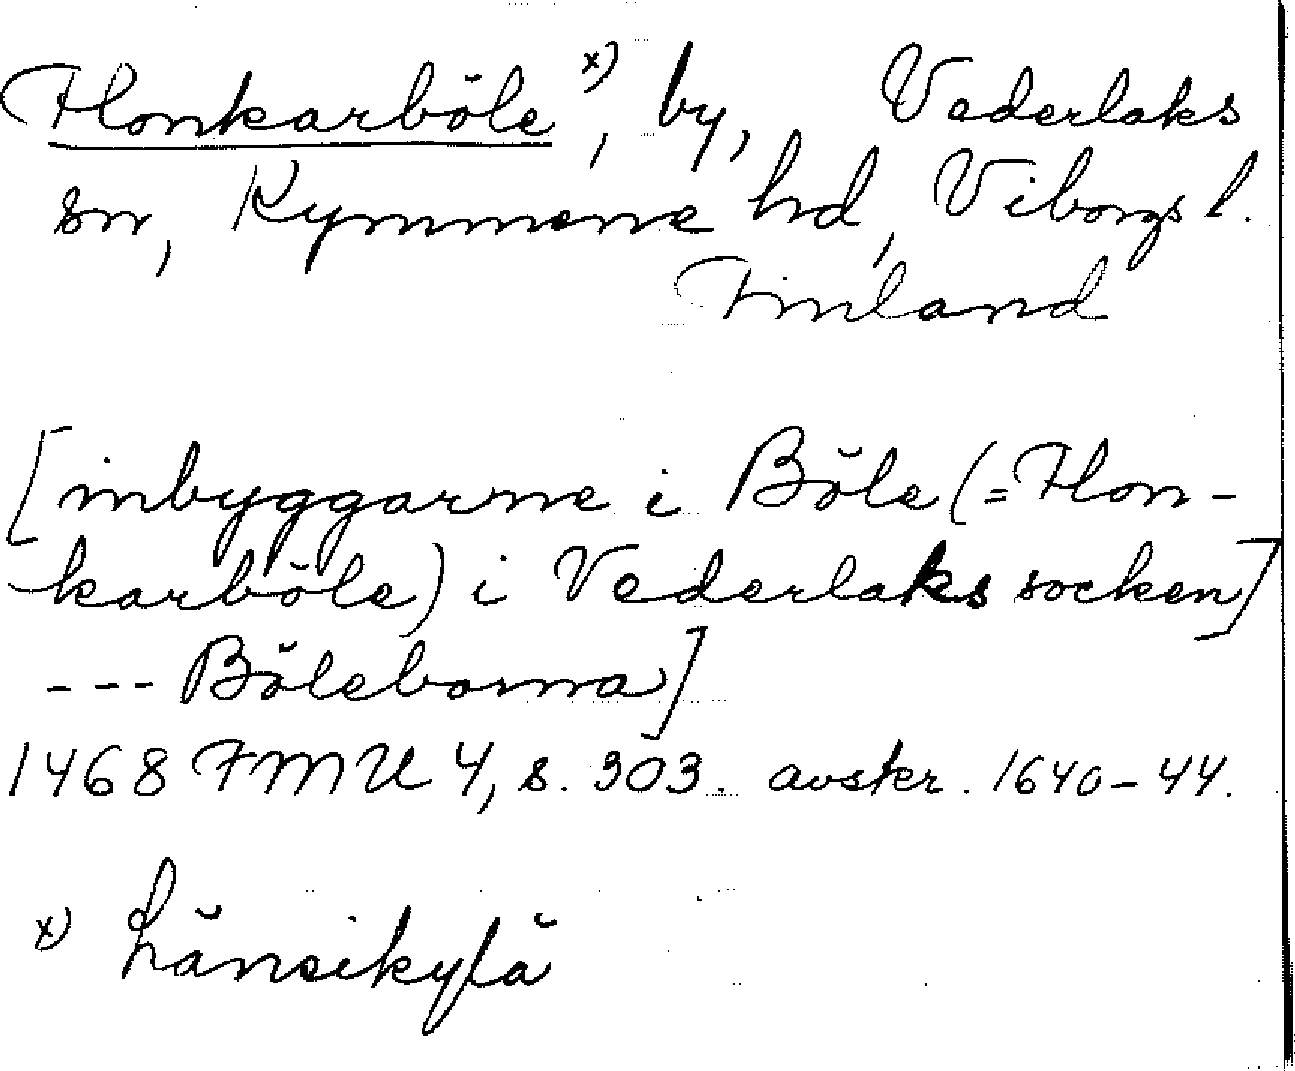 Honkarböle x), by, Vederlaks
sn, Kymmene hd, Viborgs l.
Finland
[inbyggarne i Böle (= Hon-
karböle) i Vederlaks socken]
--- Böleborna]
1468 FMU 4, s. 303. avskr. 1640-44.
x) Länsikylä